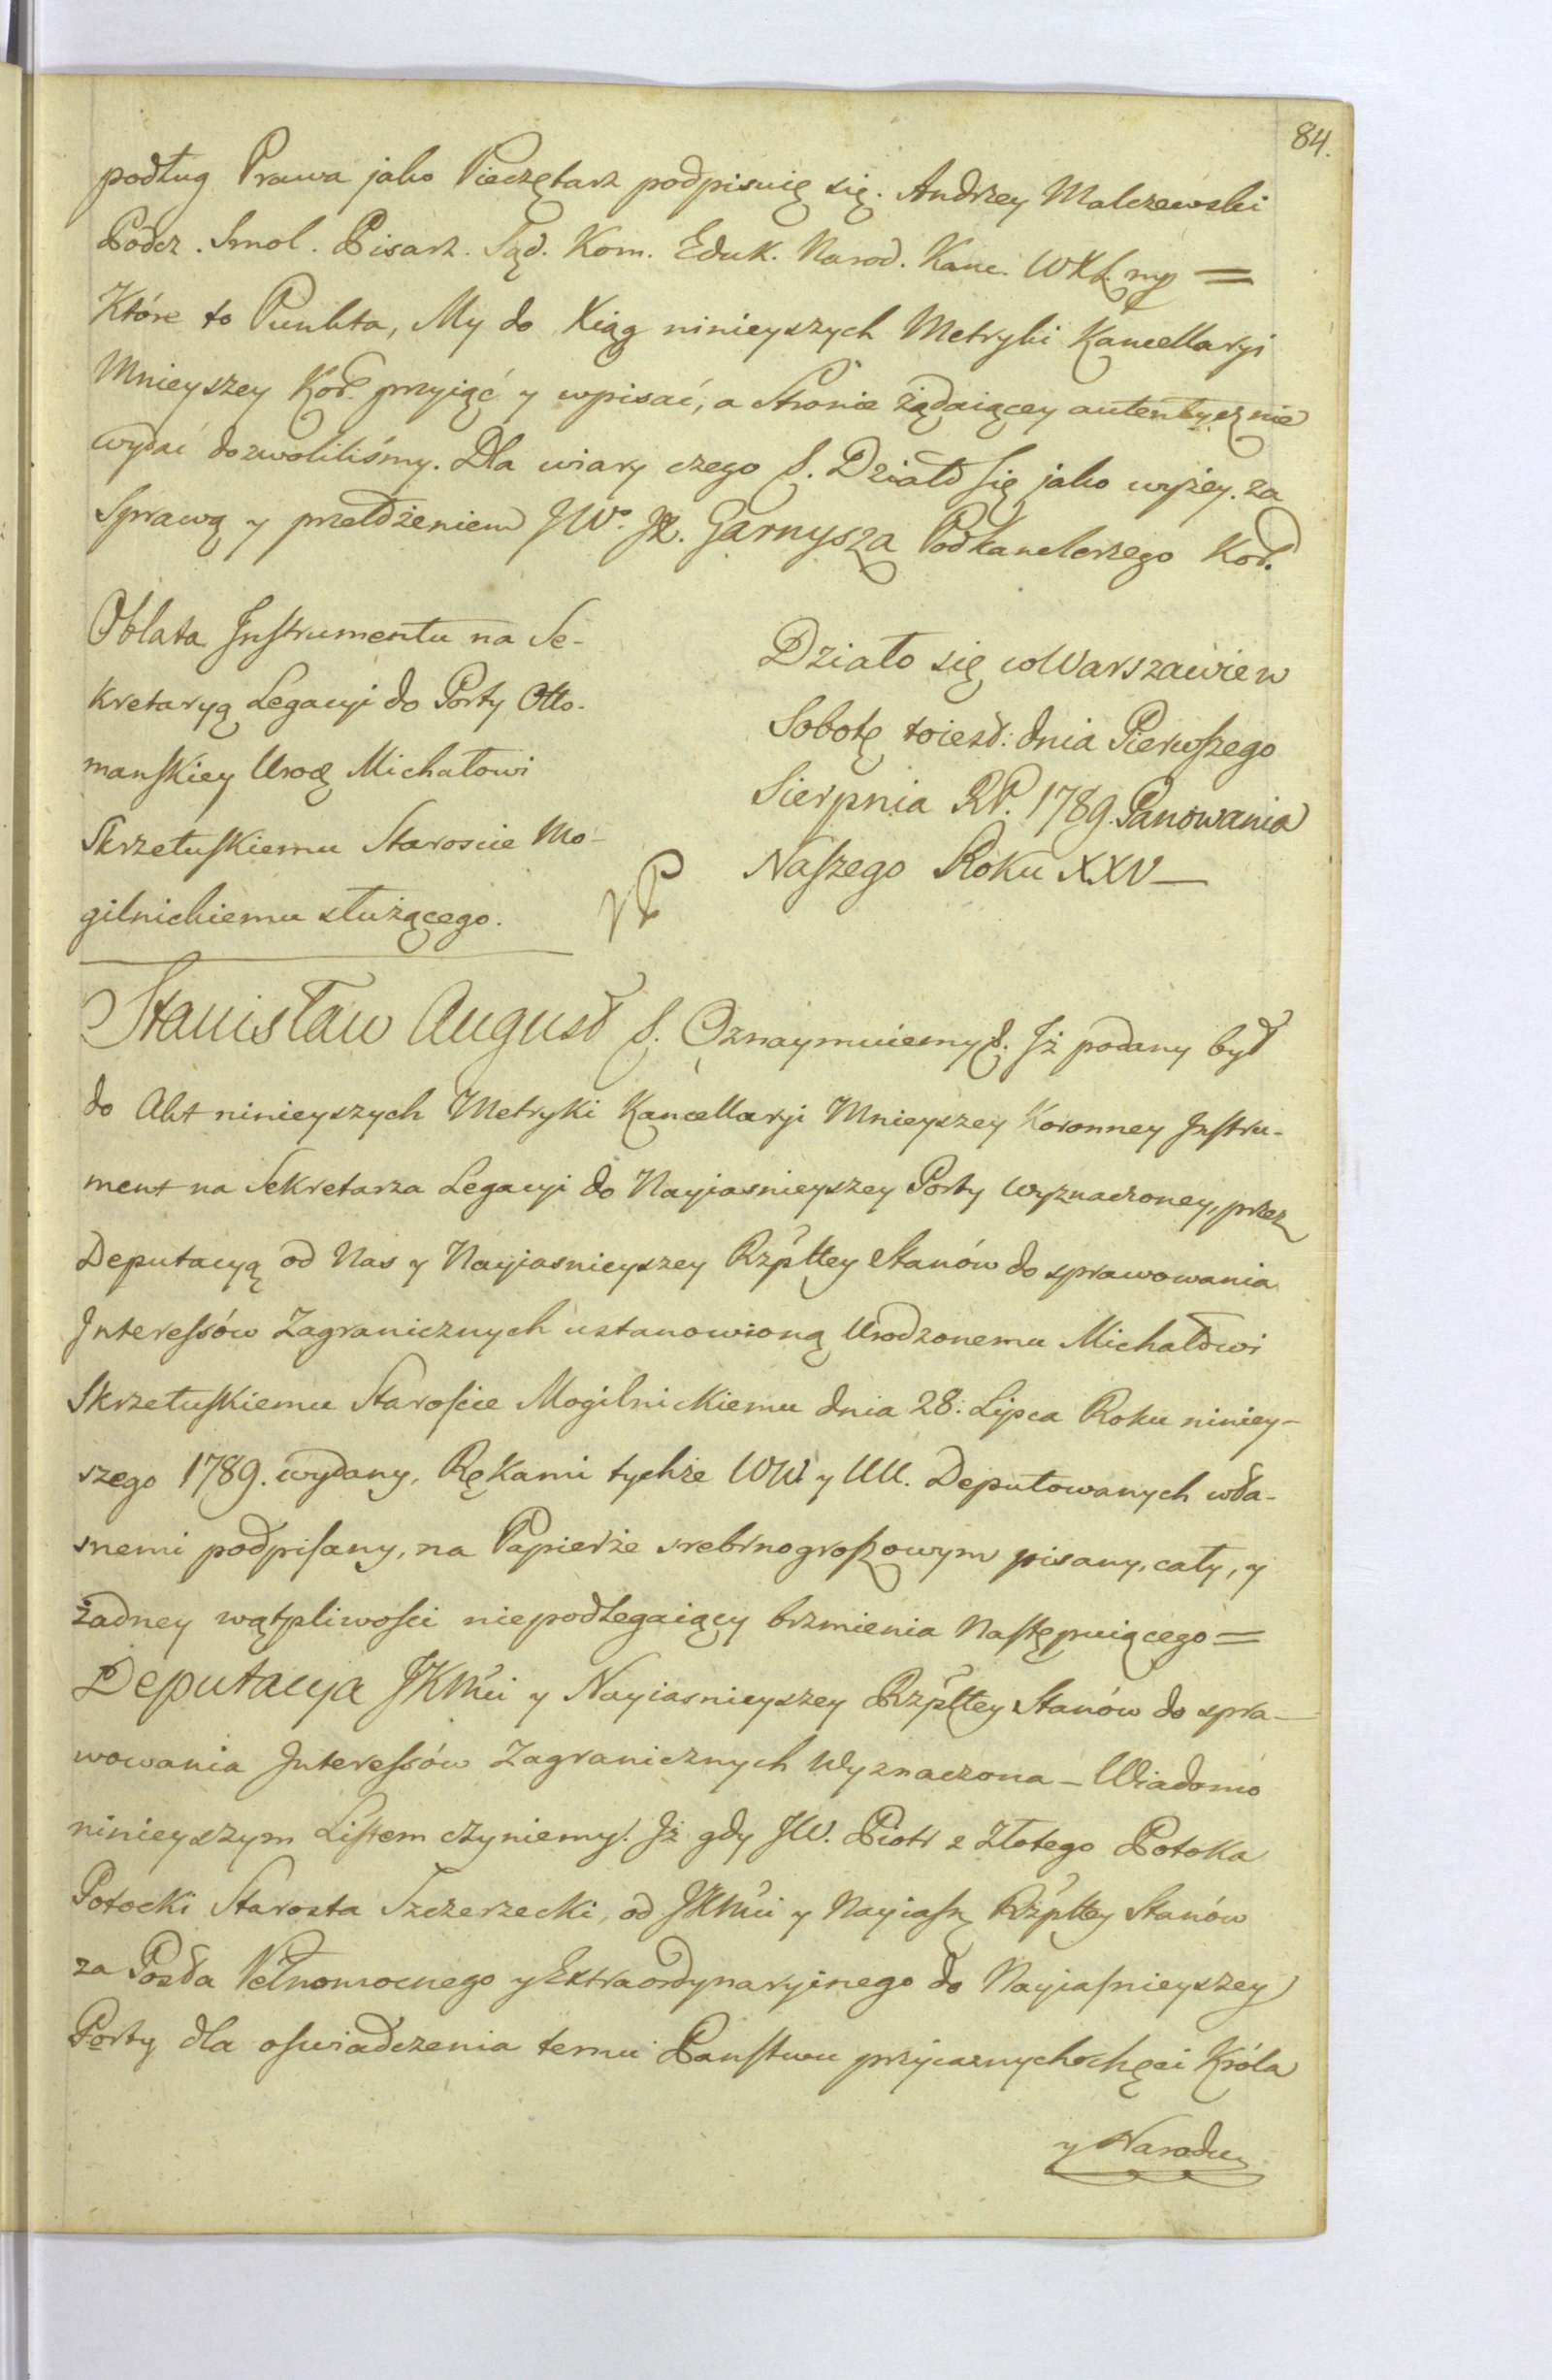 84.
podług Prawa jako Pieczętarz podpisuię się. Andrzey Malczewski
Podcz. Smol. Pisarz. Sąd. Kom. Eduk. Narod. Kanc. WXL. mp =
Które to Punkta, My do Xiąg ninieyszych Metryki Kancellaryi
Mnieyszey Kor. przyiąć y wpisać, a Stronie żądaiącey autentycznie
wydać dozwoliliśmy. Dla wiary czego &. Działo się jako wyżey. za
Sprawą y przełożeniem JW. JX. Garnysza Podkanclerzego Kor.
Oblata Instrumentu na Se-
kretaryą Legacyi do Porty Otto-
manskiey Urod. Michałowi
Skrzetuskiemu Staroscie Mo-
gilnickiemu służącego.
Działo się w Warszawie w
Sobotę toiest: dnia Pierwszego
Sierpnia RP. 1789. Panowania
Naszego Roku XXV —
Stanisław August &. Oznaymuiemy &. Iż podany był
do Akt ninieyszych Metryki Kancellaryi Mnieyszey Koronney Instru-
ment na Sekretarza Legacyi do Nayiasnieyszey Porty wyznaczoney, przez
Deputacyą od Nas y Nayiasnieyszey Rzpltey Stanów do sprawowania
Interessów Zagranicznych ustanowioną Urodzonemu Michałowi
Skrzetuskiemu Staroscie Mogilnickiemu dnia 28. Lipca Roku niniey-
szego 1789. wydany, Rękami tychże WW. y UU. Deputowanych wła-
snemi podpisany, na Papierze srebrnogroszowym pisany, cały, y
żadney wątpliwosci niepodlegaiący brzmienia Następuiącego =
Deputacya JKMci y Nayiasnieyszey Rzpltey Stanów do spra-
wowania Interessów Zagranicznych Wyznaczona – Wiadomo
ninieyszym Listem czyniemy! Iż gdy JW. Piotr z Złotego Potoka
Potocki Starosta Szczerzecki, od JKMci y Nayiasn. Rzpltey Stanów
za Posła Pełnomocnego y Extraordynaryinego do Nayiasnieyszey
Porty dla oswiadczenia temu Panstwu przyiaznych chęci Króla
y Narodu